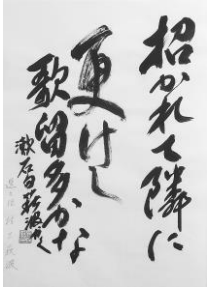 招かれて隣に
更けし
歌留多かな
漱石句